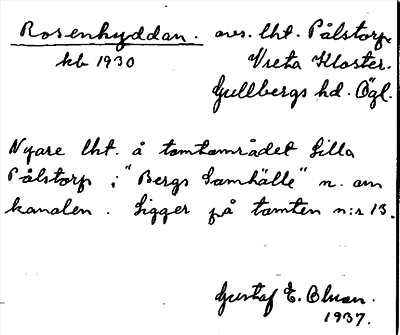 Rosenhyddan. avs. lht. Pålstorp.
kb 1930 Vreta Kloster.
Gullbergs hd. Ögl.
Nyare lht. å tomtområdet Lilla
Pålstorp i "Bergs Samhälle" n. om
kanalen. Ligger på tomten n:r 13.
Gustaf E.
1937.